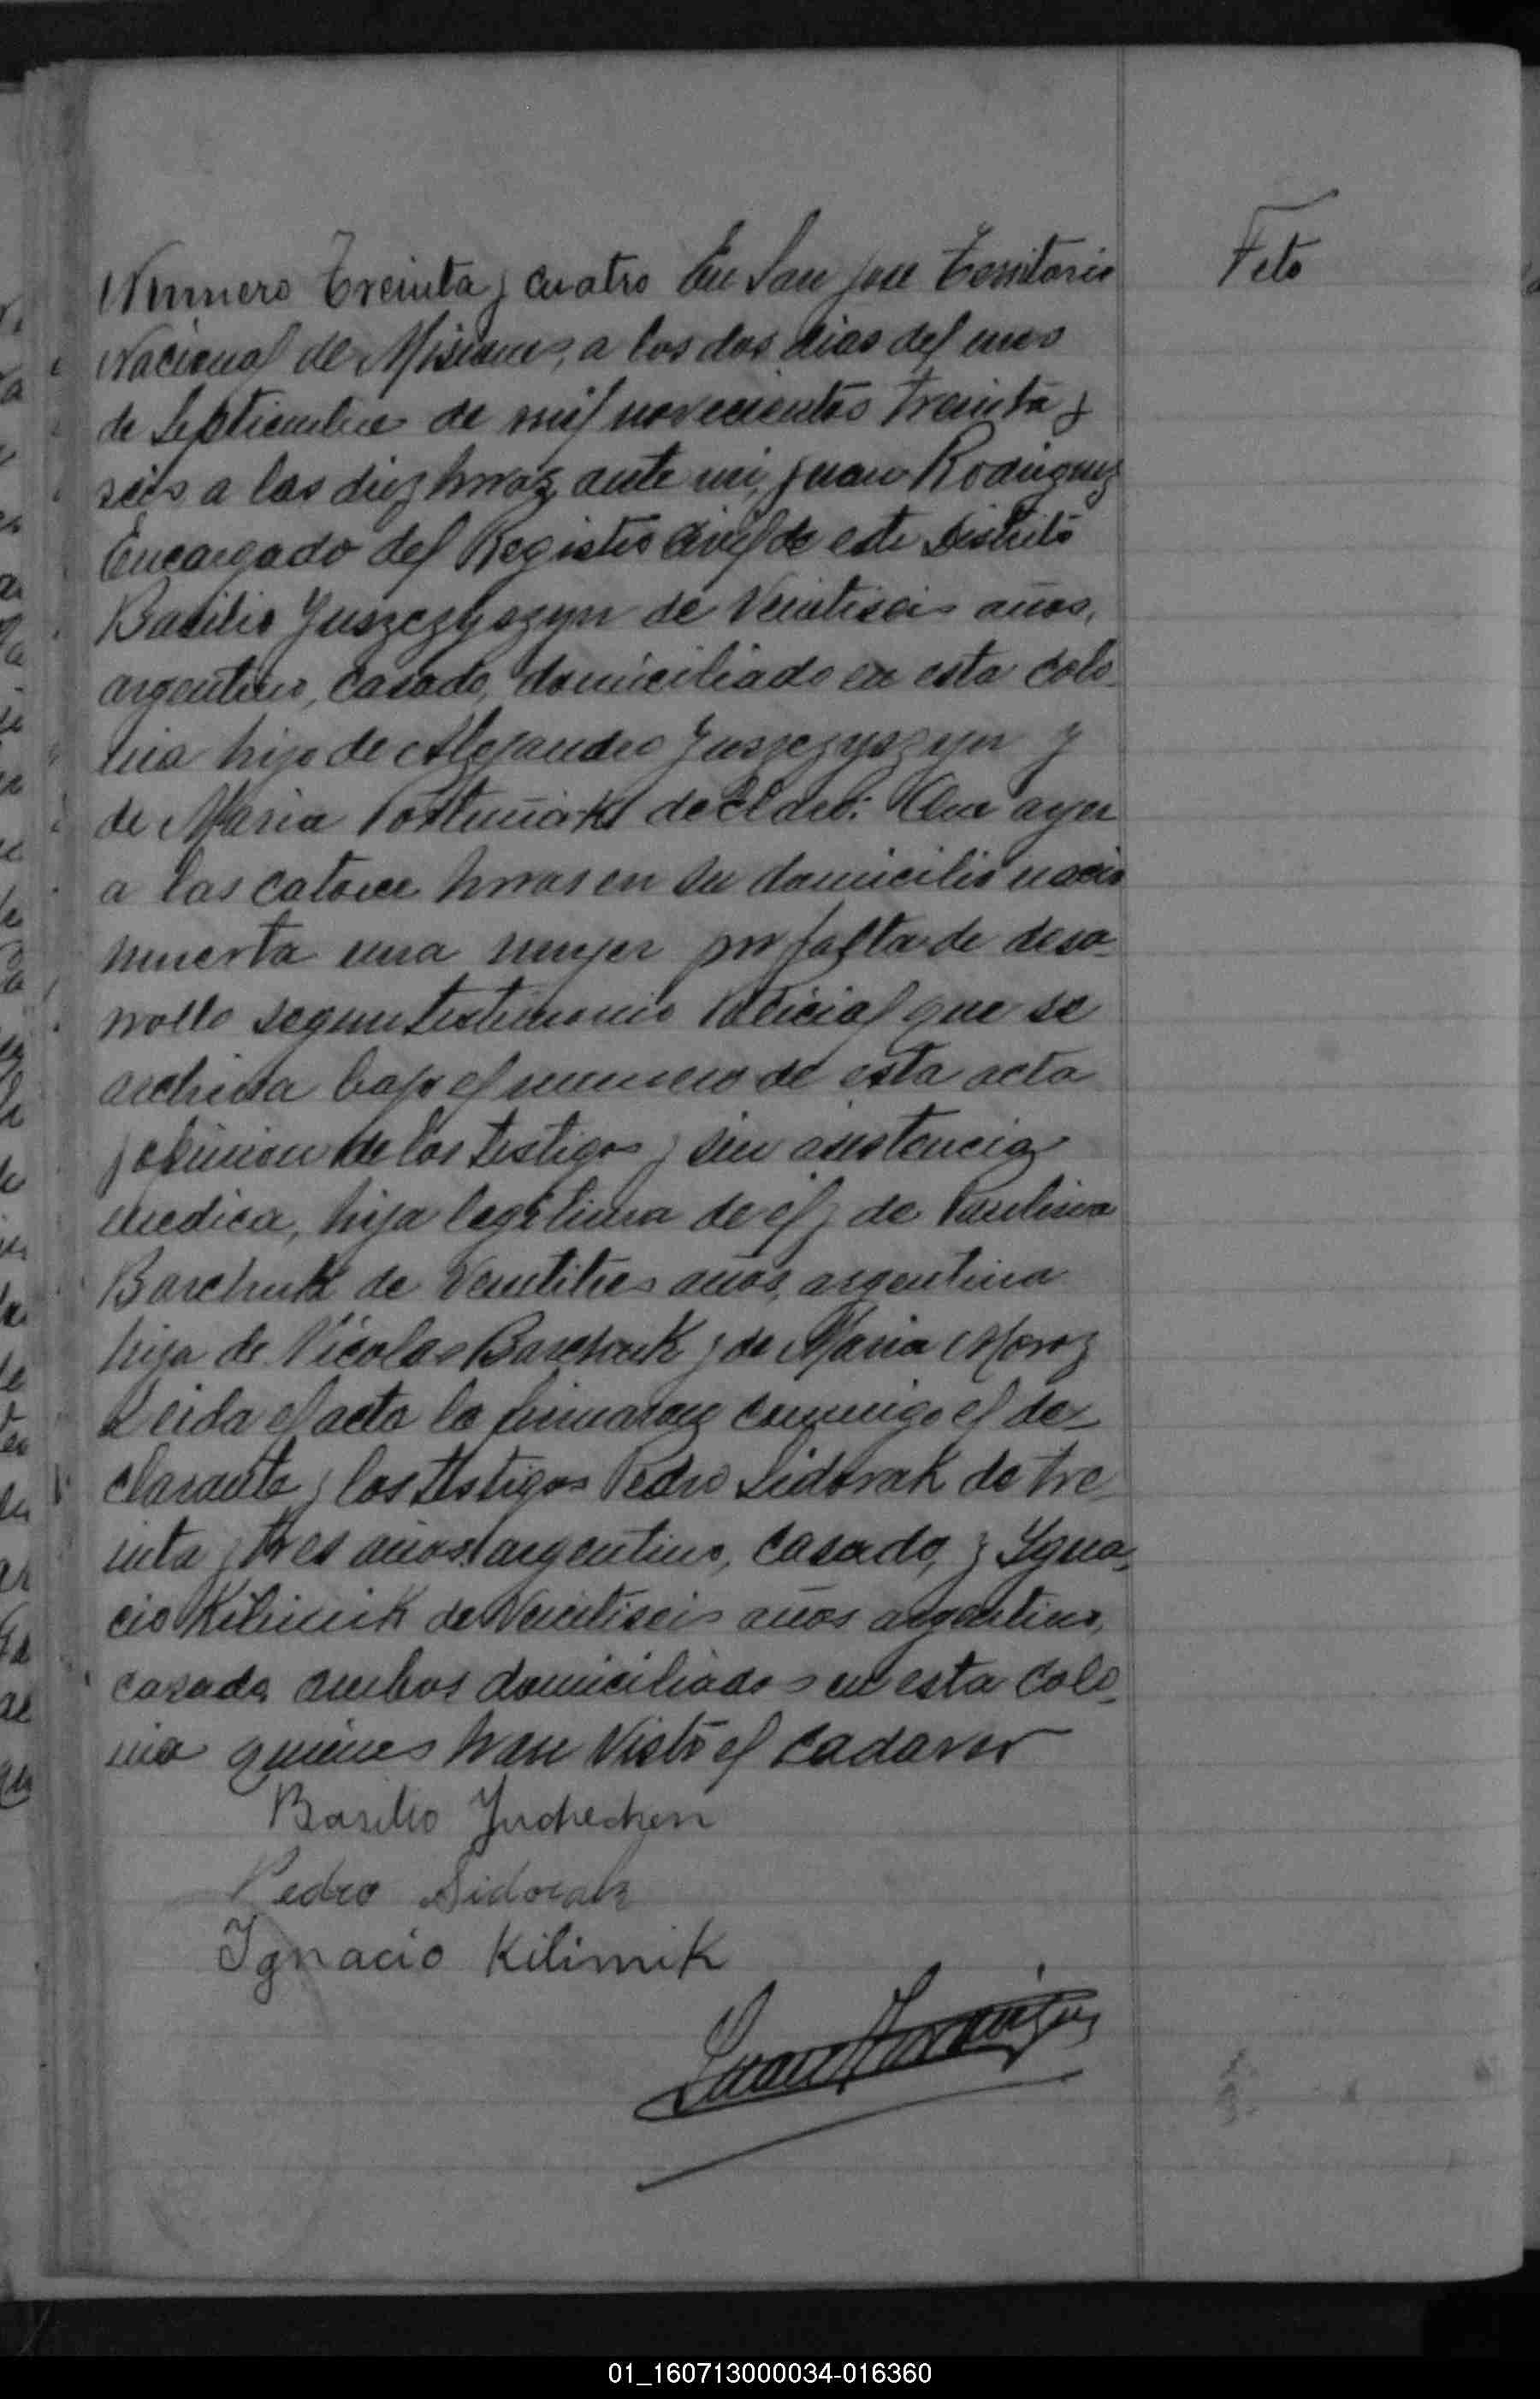 Feto
Numero Treinta y cuatro En San Jose Territorio
Nacional de Misiones, a los dos dias del mes
de Septiembre de mil novecientos treinta y
seis a las diez horas, ante mi, Juan Rodriguez
Encargado del Registro Civil de este Distrito
Basilio Juszczyszyn de Veintiseis años,
argentino, casado, domiciliado en esta colo-
nia hijo de Alejandro Juszczyszyn y
de Maria declaró: Que ayer
a las catorce horas en su domicilio nacio
muerta una mujer por falta de desa-
rrollo segun testimonio Policial que se
archiva bajo el numero de esta acta
y opinion de los testigos y sin asistencia
medica, hija legitima de el y de Paulina
Barchuk de Veintitres años, argentina
hija de Nicolas Barchuk y de Maria Moroz
Leida el acta la firmaron conmigo el de-
clarante y los testigos Pedro Sidorak de tre-
inta y tres años argentino, casado, y Ygna-
cio Kilimik de Veintiseis años argentino,
casado, ambos domiciliados en esta Colo-
nia quienes han Visto el cadaver
Basilio Juchechen
Pedro Sidorak
Ignacio Kilimik
Juan Rodriguez
01_160713000034-016360